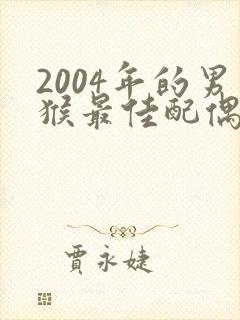 2004年的男
猴最佳配偶
贾永婕